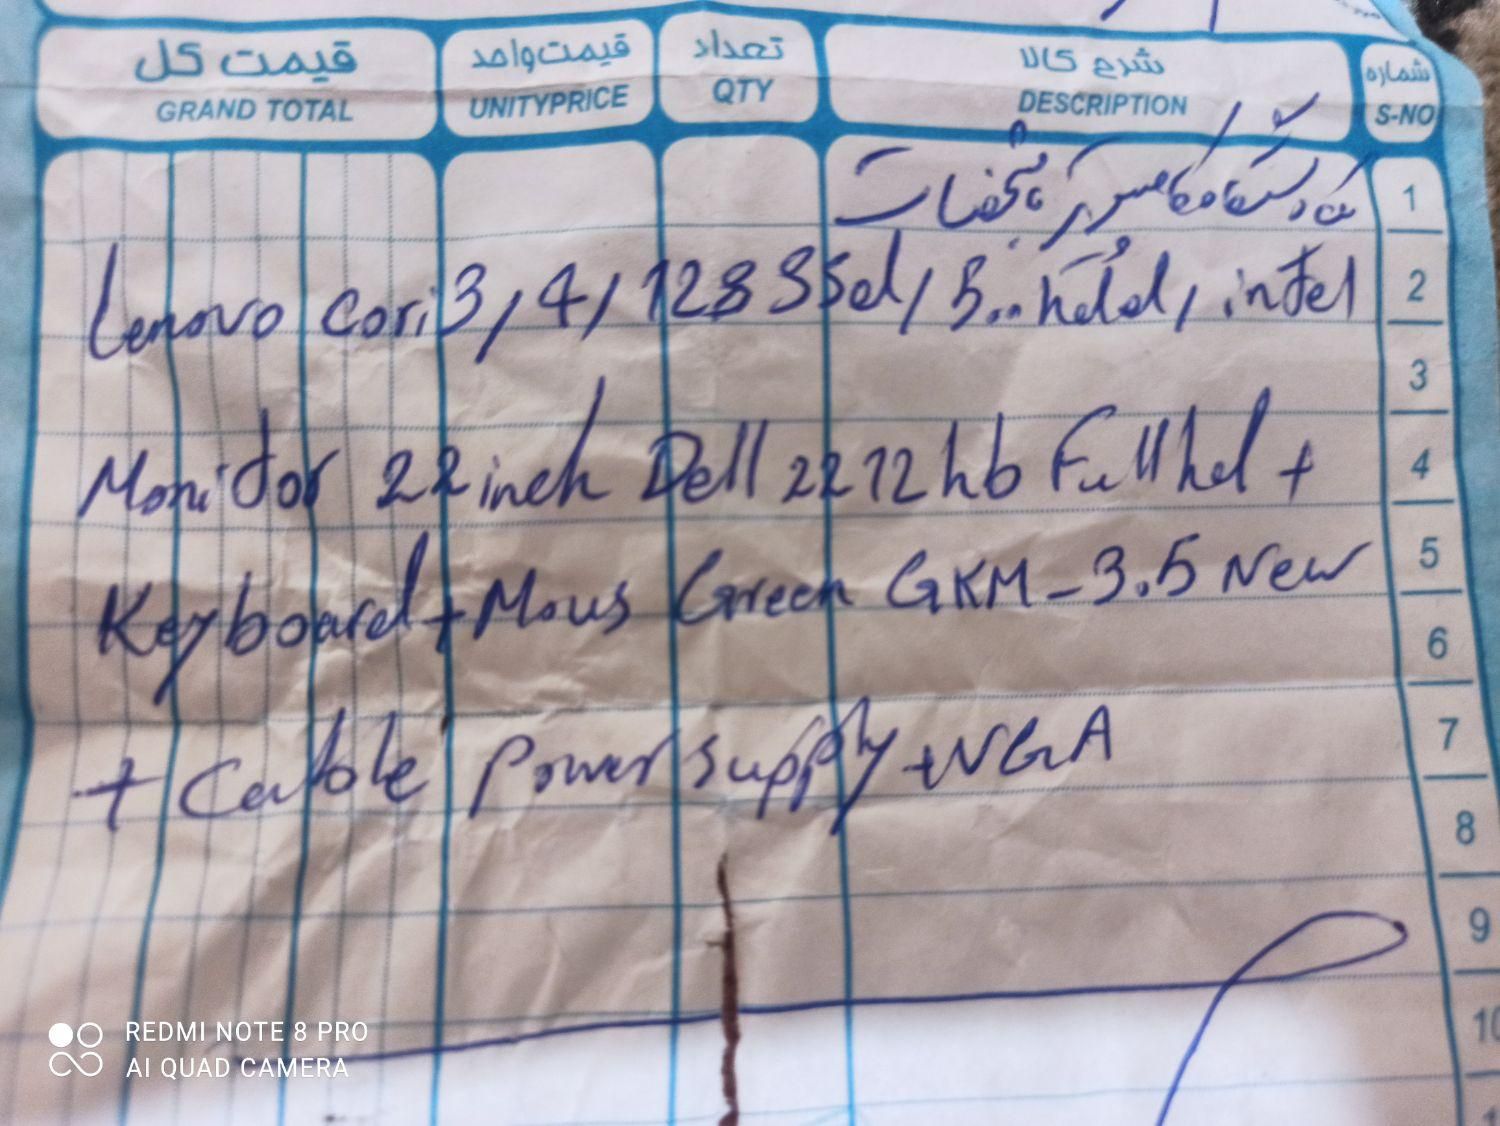 شماره شرح کالا تعداد قیمت‌واحد قیمت کل
S-NO DESCRIPTION QTY UNITYPRICE GRAND TOTAL
1 یک دستگاه کامپیوتر با مشخصات
2 Lenovo Cori3, 4, 128 SSd, 500 hdd, intel
3
4 Monitor 22 inch Dell 2212hb Full hd +
5 Keyboard + Mous Green GKM-3.5 New
6
7 + Cable Power supply + VGA
8
9
10
REDMI NOTE 8 PRO
AI QUAD CAMERA